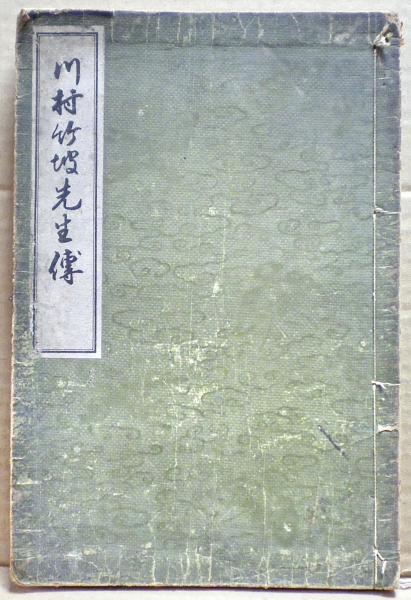 川村竹坡先生傳